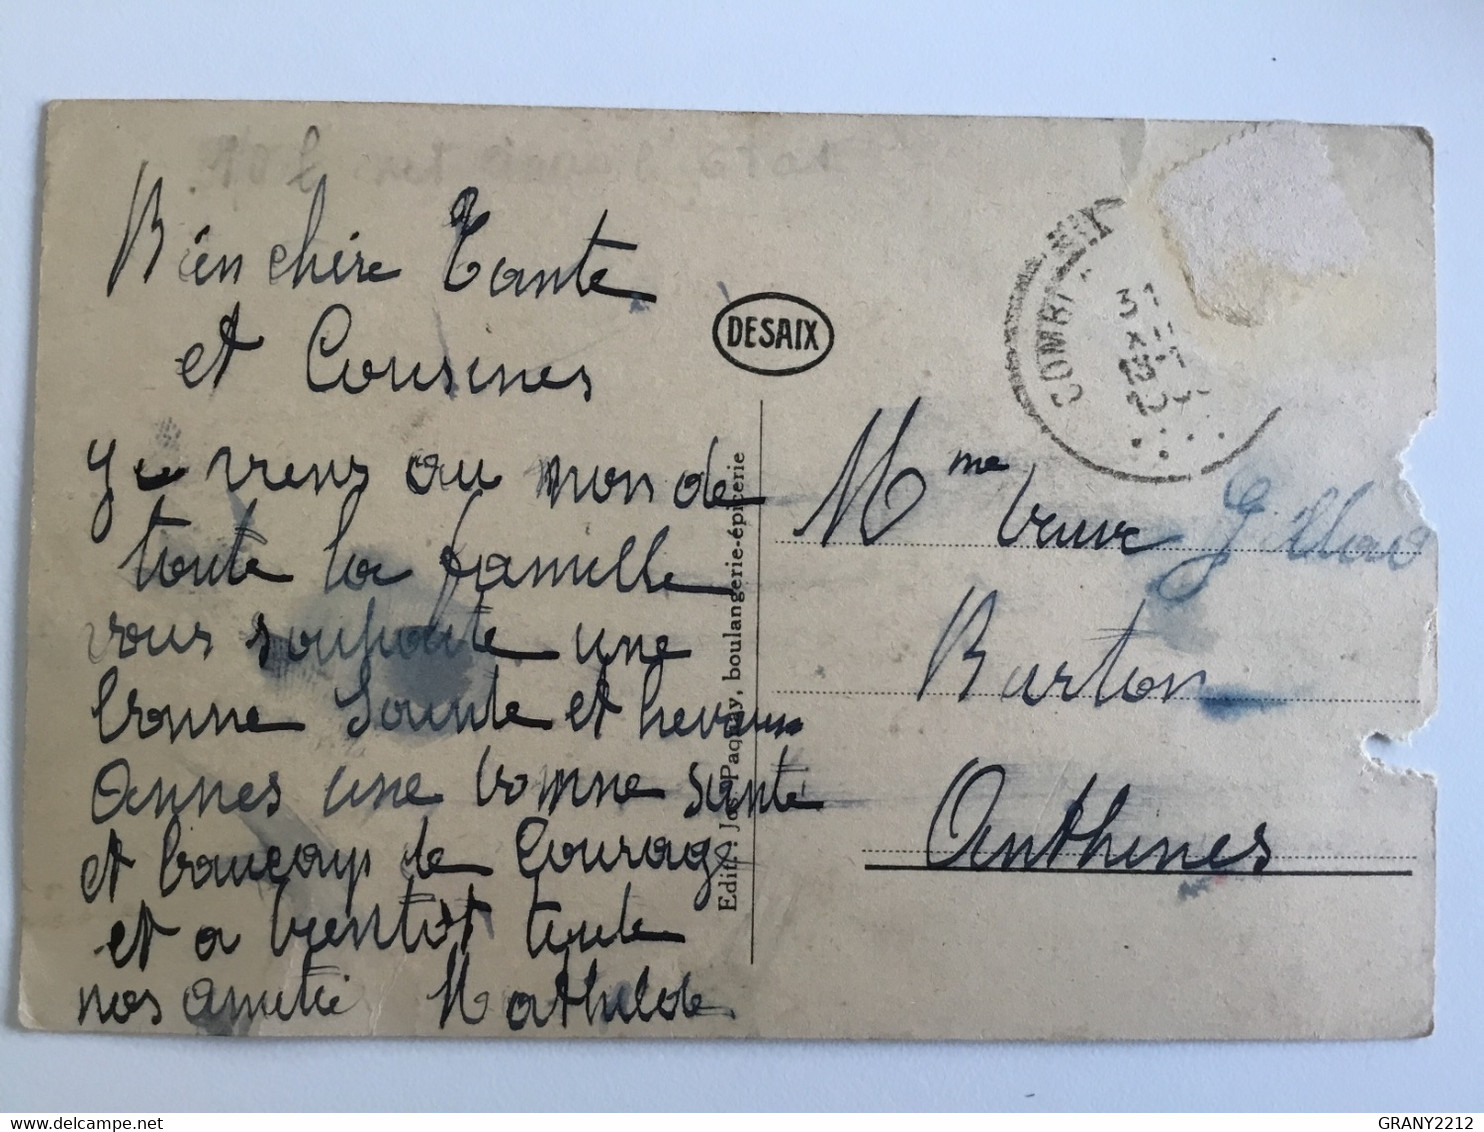 Bien chère Tante
et Cousines
Je viens au non de
toute la famille
vous souhaite une
bonne Sainte et heureuse
Annes une bonne santé
et baucoup de Courage
et a bientot toute
nos amitié Mathilde
DESAIX
Edit. : Jos. Paquay, boulangerie-épicerie
COMBL
31
XII
Mme Veuve
Burton
Anthines
GRANY2212